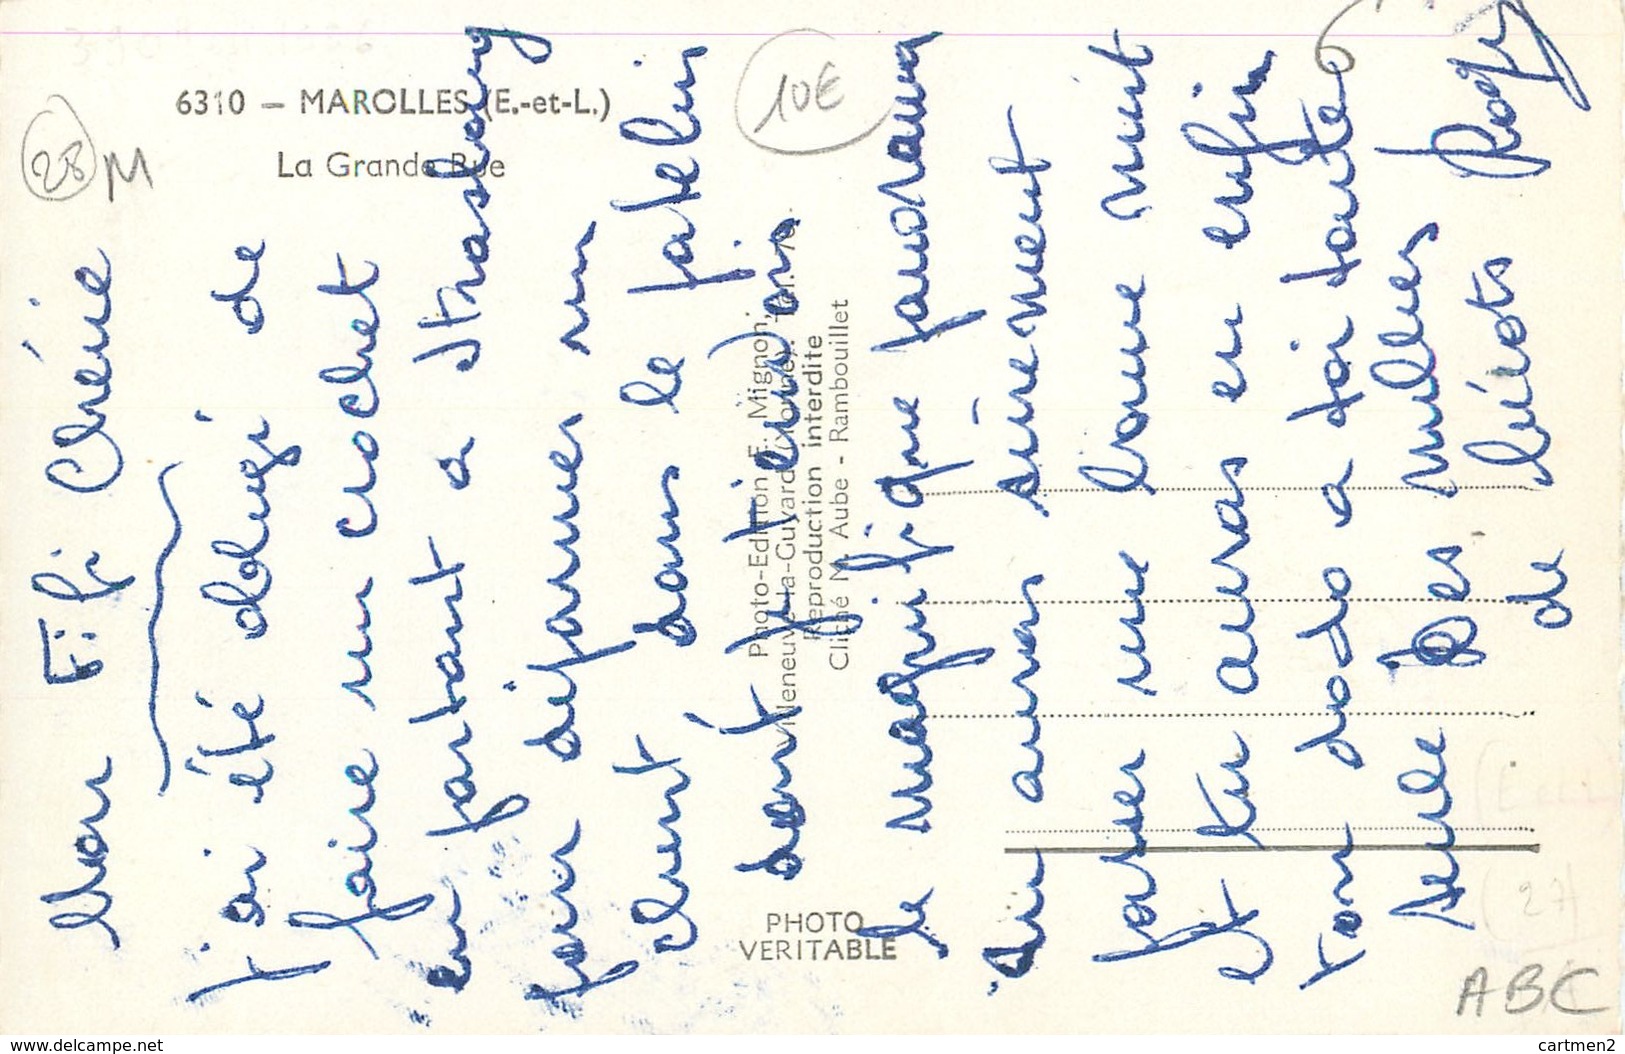 6310 — MAROLLES (E.-et-L.)
La Grande Rue
28 M
10€
Mon Fifi Chérie
J'ai été obligé de
faire un crochet
en partant a Strasbourg
pour dépanner un
client dans le patelin
dont je t'envois
le magnifique panorama
Dui aurais surement
passer une bonne nuit
et tu auras eu enfin
ton dodo a toi toute
seule Des milles
de bécots Roger
Photo-Edition E. Mignon,
Villeneuve-la-Guyard (Yonne). Tél.
Reproduction interdite
Cliché M. Aube - Rambouillet
PHOTO
VERITABLE
(27)
ABC
www.delcampe.net
cartmen2